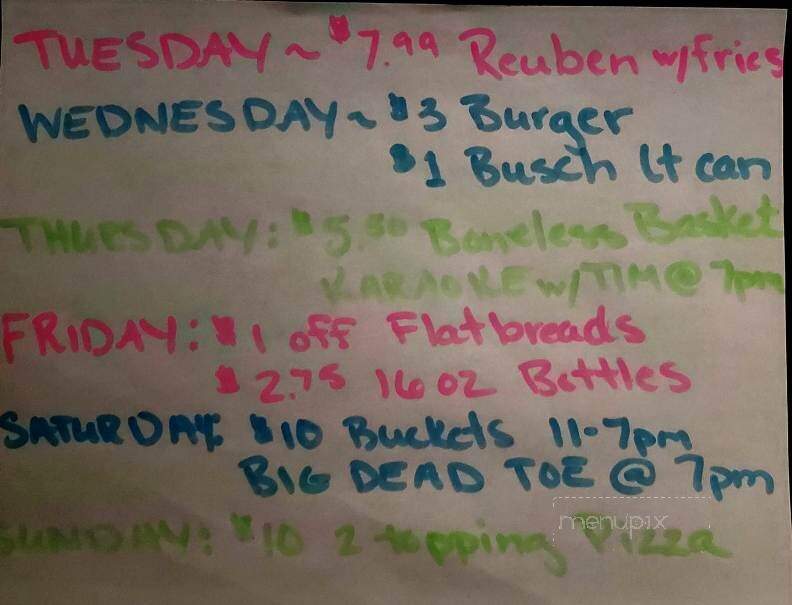 TUESDAY ~ $7.99 Reuben w/fries
WEDNESDAY ~ $3 Burger
$1 Busch Lt can
THURSDAY: $5.50 Boneless Basket
KARAOKE w/TIM @ 7pm
FRIDAY: $1 off Flatbreads
$2.75 16 oz Bottles
SATURDAY: $10 Buckets 11-7pm
BIG DEAD TOE @ 7pm
menupix
SUNDAY: $10 2 topping Pizza